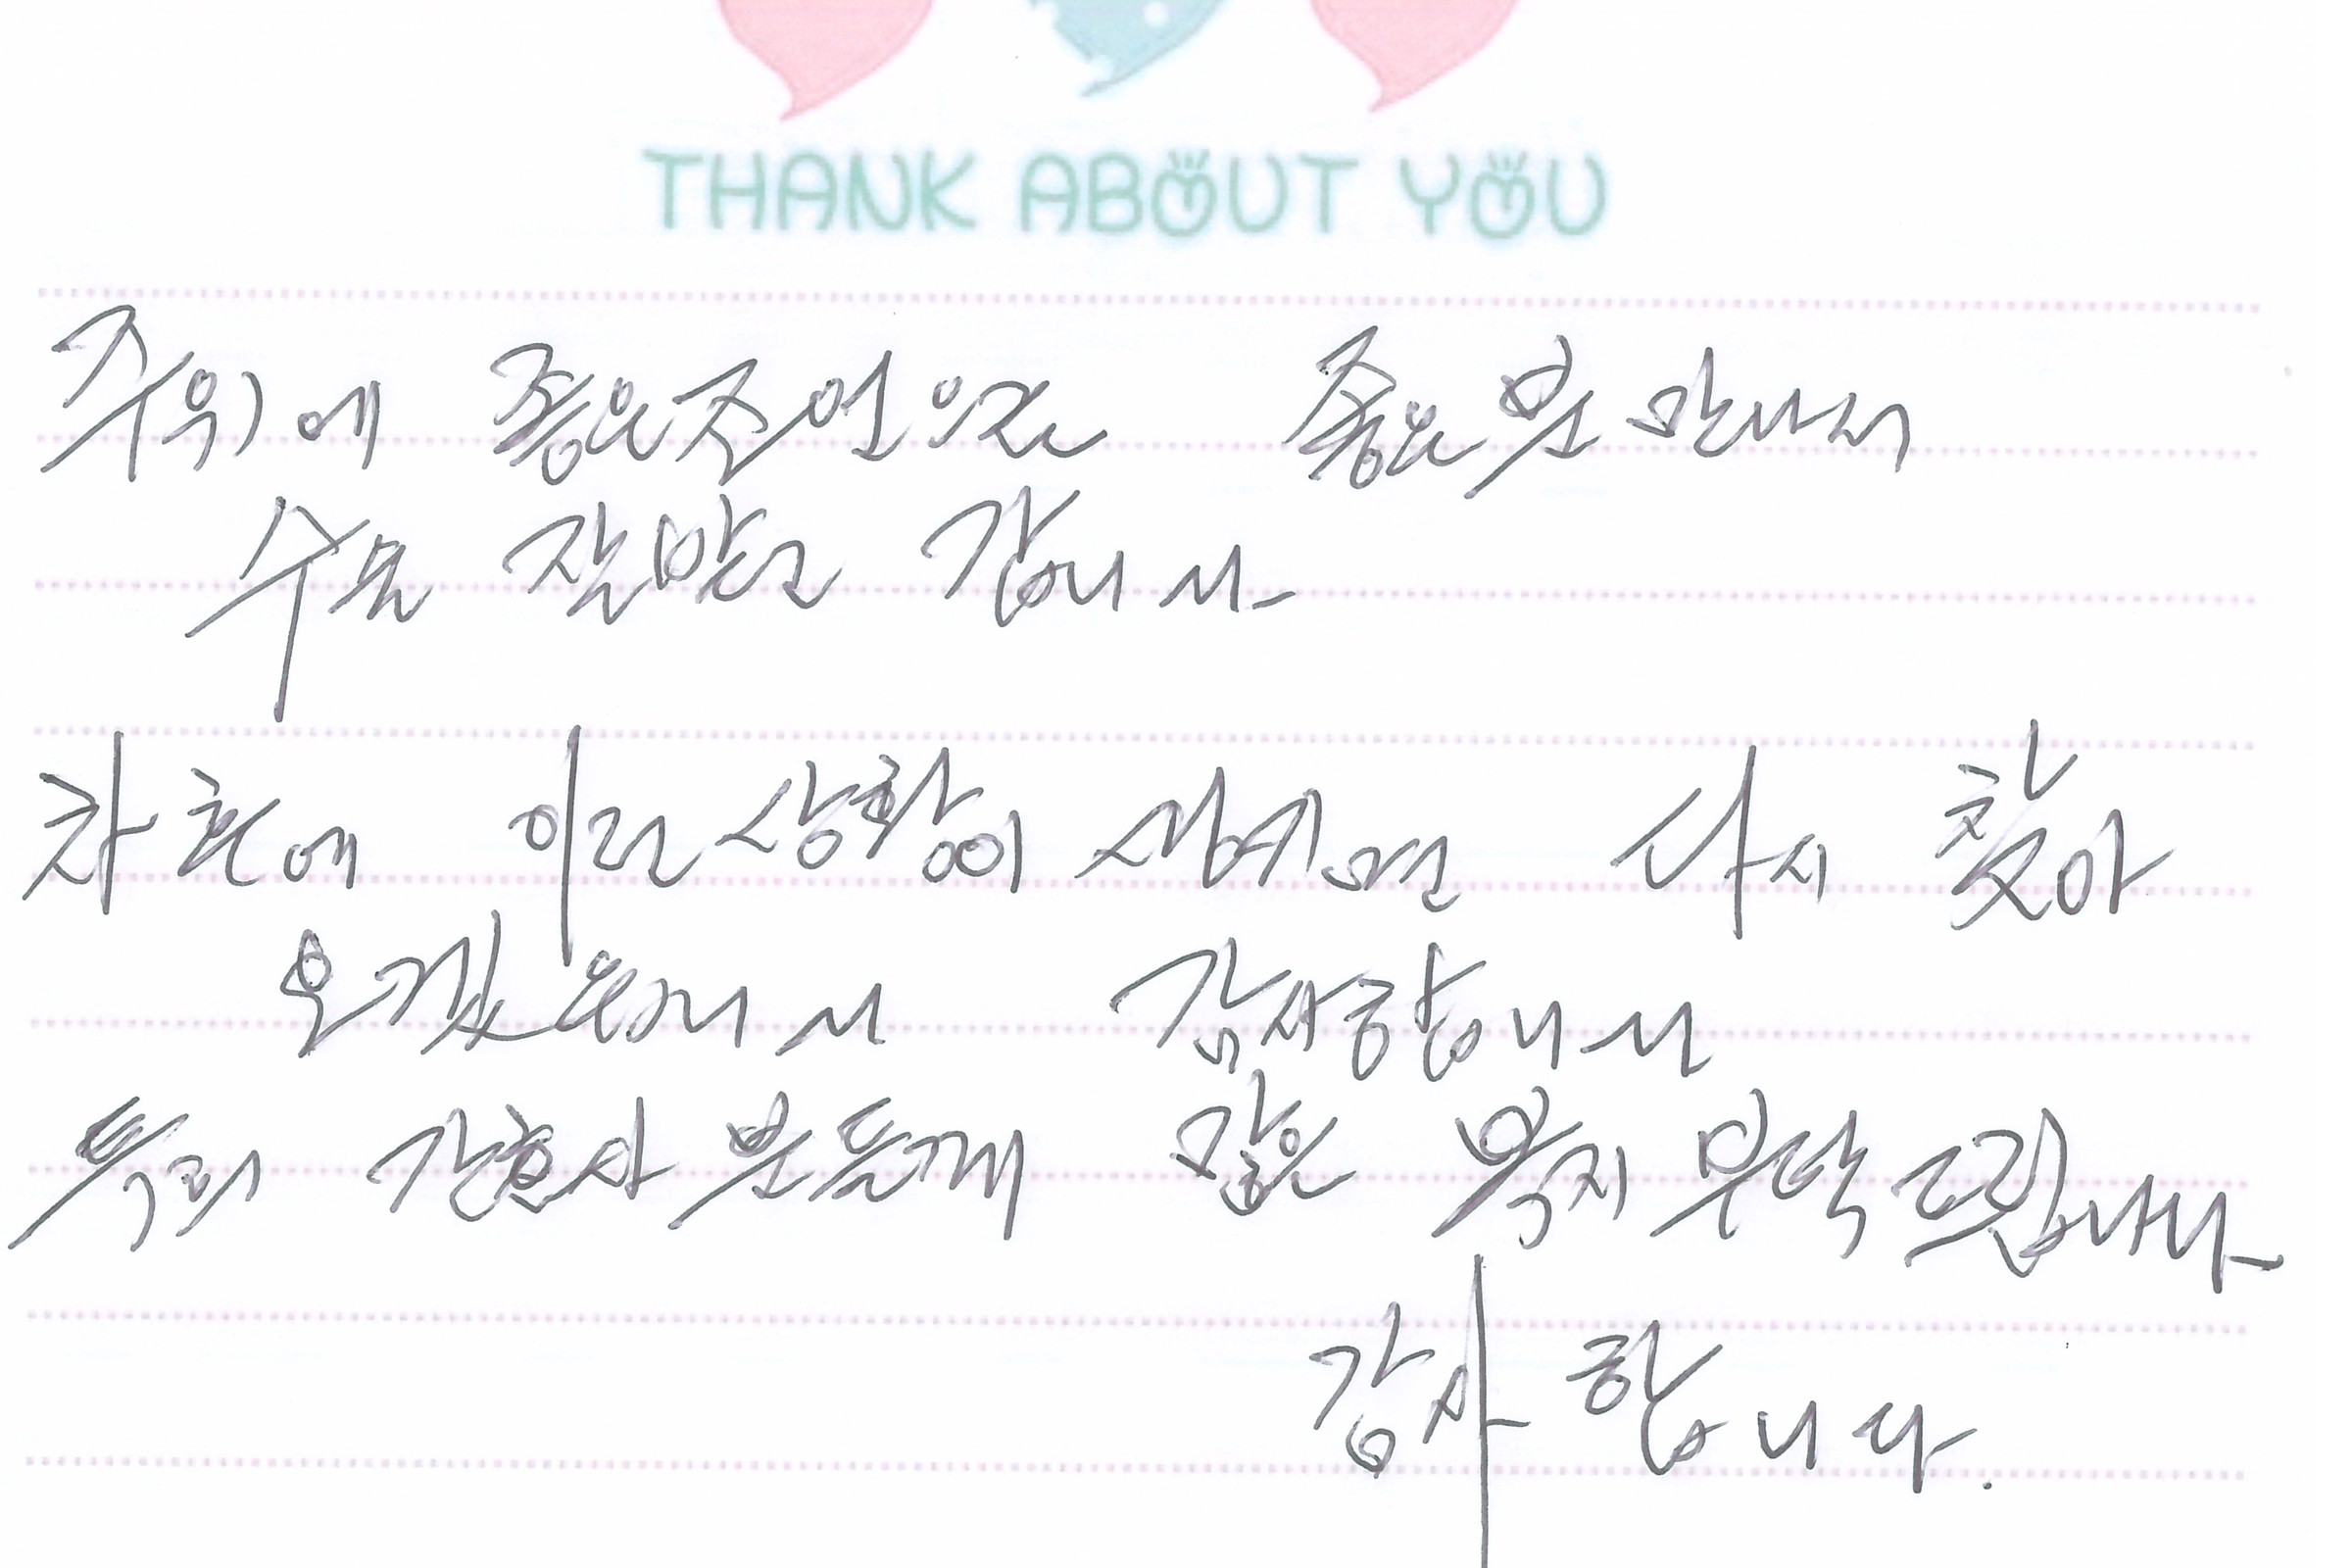 THANK ABOUT YOU
주위에 좋은 주변 있고 좋은분 만나서
수술 잘받고 갑니다
차후에 이런 상황이 생기면 다시 찾아
오겠습니다 감사합니다
특히 간호사 분들께 많은 복지 부탁드립니다
감사 합니다.